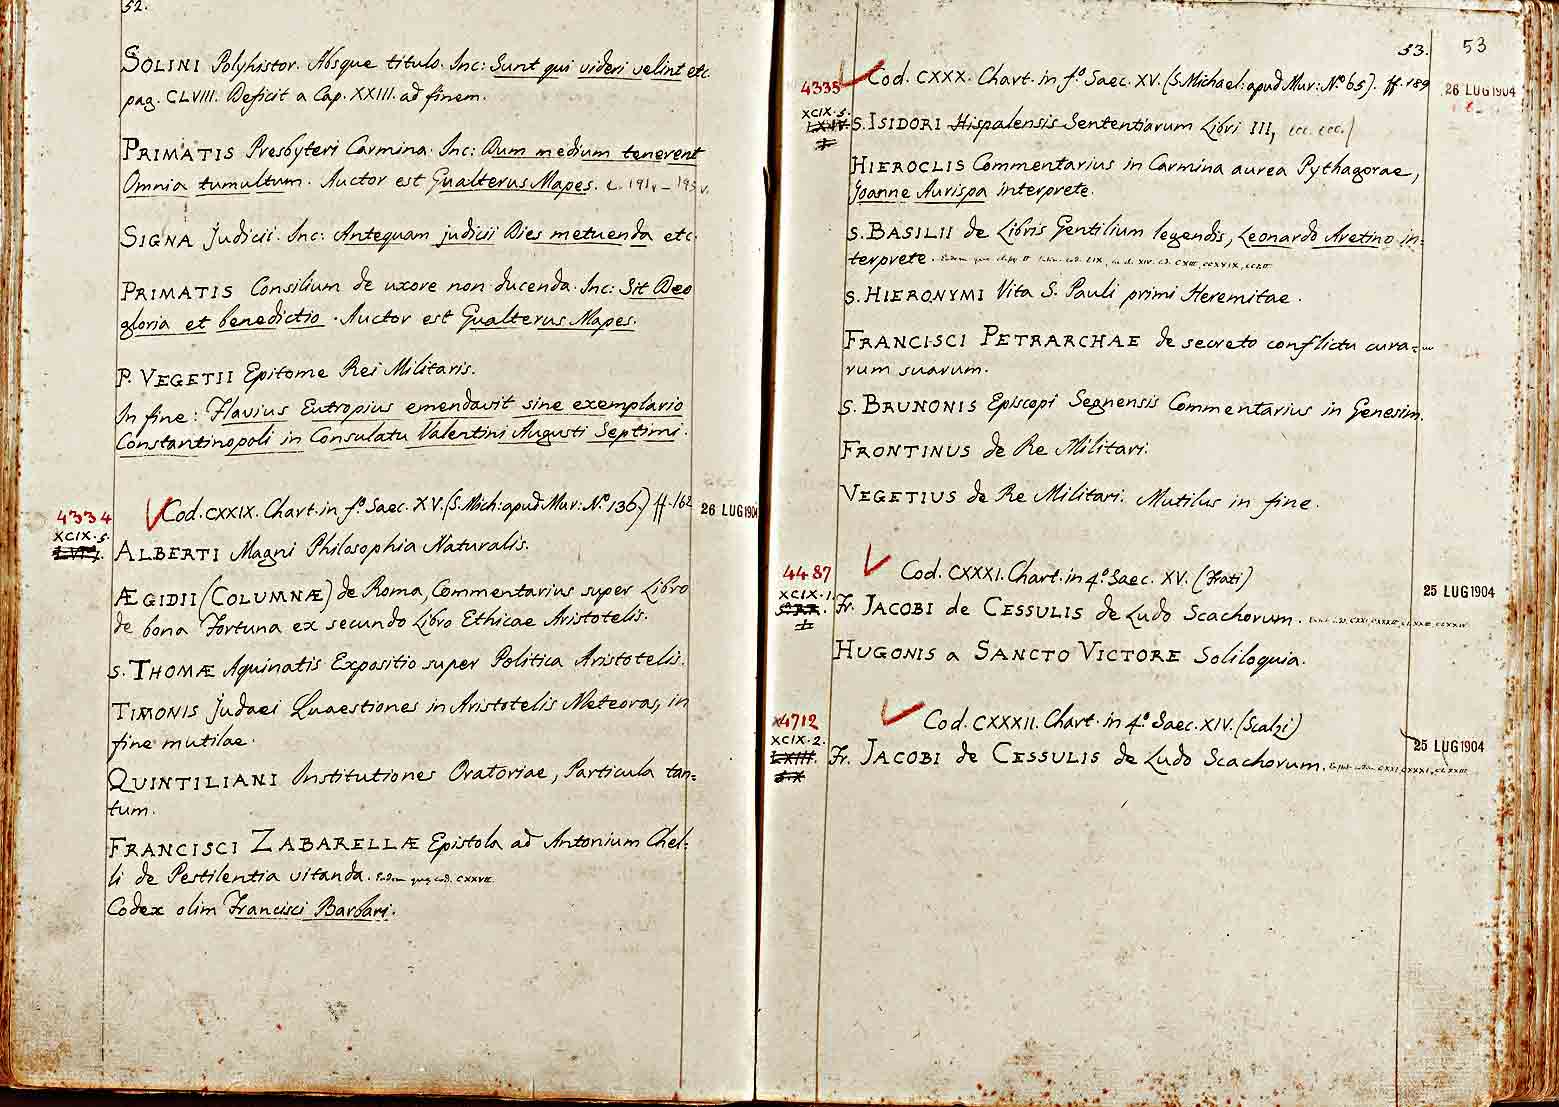 52.
SOLINI Polyhistor. Absque titulo. Inc: Sunt qui videri velint etc.
pag. CLVIII. Deficit a Cap. XXIII. ad finem.
PRIMATIS Presbyteri Carmina. Inc: Dum medium tenerent
Omnia tumultum. Auctor est Gualterus Mapes. c. 191v - 195v.
SIGNA Judicii. Inc: Antequam judicii Dies metuenda etc.
PRIMATIS Consilium de uxore non ducenda. Inc: Sit Deo
gloria et benedictio. Auctor est Gualterus Mapes.
P. VEGETII Epitome Rei Militaris.
In fine: Flavius Eutropius emendavit sine exemplario
Constantinopoli in Consulatu Valentini Augusti Septimi.
4334 Cod. CXXIX. Chart. in fº Saec. XV. (S. Mich: apud Mur: Nº 136.) ff. 162 26 LUG 1904
XCIX. 5.
ALBERTI Magni Philosophia Naturalis.
ÆGIDII (COLUMNÆ) de Roma, Commentarius super Libro
de bona Fortuna ex secundo Libro Ethicae Aristotelis.
S. THOMÆ Aquinatis Expositio super Politica Aristotelis.
TIMONIS Judaei Quaestiones in Aristotelis Meteoras, in
fine mutilae.
QUINTILIANI Institutiones Oratoriae, Particula tan=
tum.
FRANCISCI ZABARELLÆ Epistola ad Antonium Chel=
li de Pestilentia vitanda. cod. CXXVII.
Codex olim Francisci Barbari.
53. 53
4335 Cod. CXXX. Chart. in fº Saec. XV. (S. Michael: apud Mur: Nº 65). ff. 189 26 LUG 1904
XCIX. 5.
S. ISIDORI Hispalensis Sententiarum Libri III, ecc. ecc.)
HIEROCLIS Commentarius in Carmina aurea Pythagorae,
Joanne Aurispa interprete.
S. BASILII de Libris Gentilium legendis, Leonardo Aretino in=
terprete.
S. HIERONYMI Vita S. Pauli primi Heremitae.
FRANCISCI PETRARCHAE de secreto conflictu cura=
rum suarum.
S. BRUNONIS Episcopi Segnensis Commentarius in Genesim.
FRONTINUS de Re Militari.
VEGETIUS de Re Militari. Mutilus in fine.
4487 Cod. CXXXI. Chart. in 4º Saec. XV. (Frati) 25 LUG 1904
XCIX. 1.
Fr. JACOBI de CESSULIS de Ludo Scachorum.
HUGONIS a SANCTO VICTORE Soliloquia.
4712 Cod. CXXXII. Chart. in 4º Saec. XIV. (Scalzi) 25 LUG 1904
XCIX. 2.
Fr. JACOBI de CESSULIS de Ludo Scachorum.